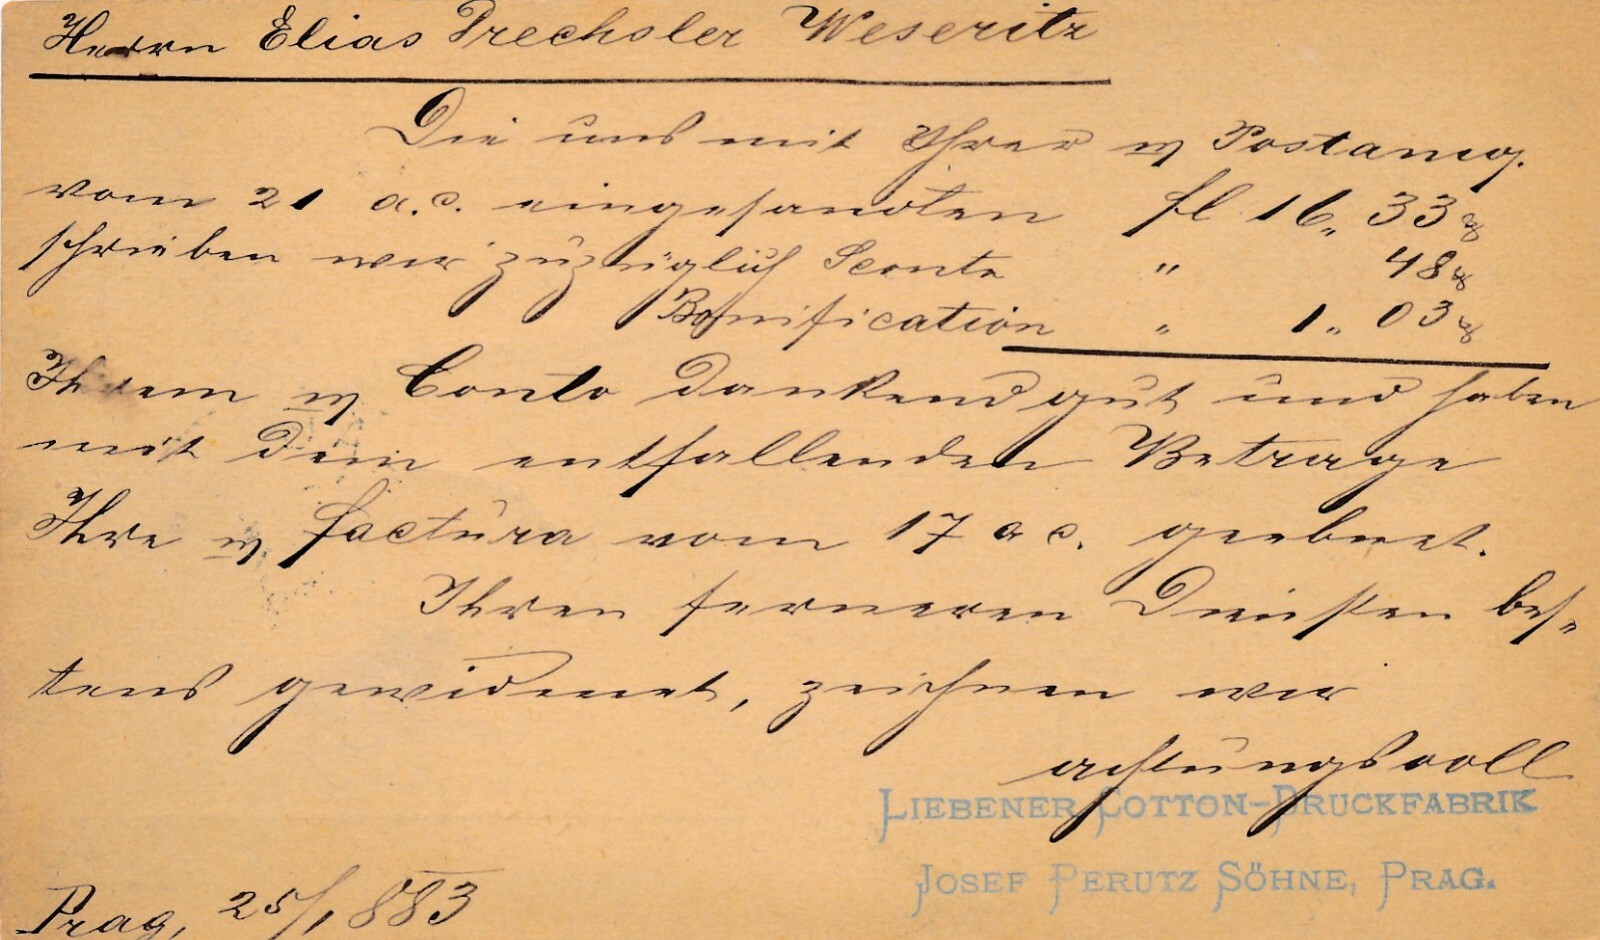 Herrn Elias Drechsler Weseritz
Die uns mit Ihrer w Postanwg.
vom 21 a.c. eingesandten fl 16„ 33 x
schrieben wir zuzüglich Sconto " 48 x
Bonification " 1„ 03 x
Ihrem w Conto dankend gut und haben
mit dem entfallenden Betrage
Ihre w. factura vom 17 a c. geebnet.
Ihren ferneren Diensten bes-
tens gewidmet, zeichnen wir
achtungsvoll
LIEBENER COTTON-DRUCKFABRIK
JOSEF PERUTZ SÖHNE, PRAG.
Prag, 25/1 883